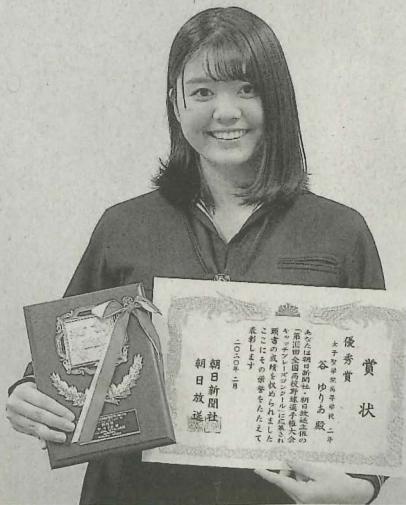 賞状
優秀賞
女子聖学院高等学校 二年
谷 ゆりあ 殿
あなたは朝日新聞社・朝日放送主催の
全国高校野球選手権大会
キャッチフレーズコンクールに応募され
頭書の成績を収められました
ここにその栄誉をたたえて
表彰します
二〇二〇年二月
朝日新聞社
朝日放送